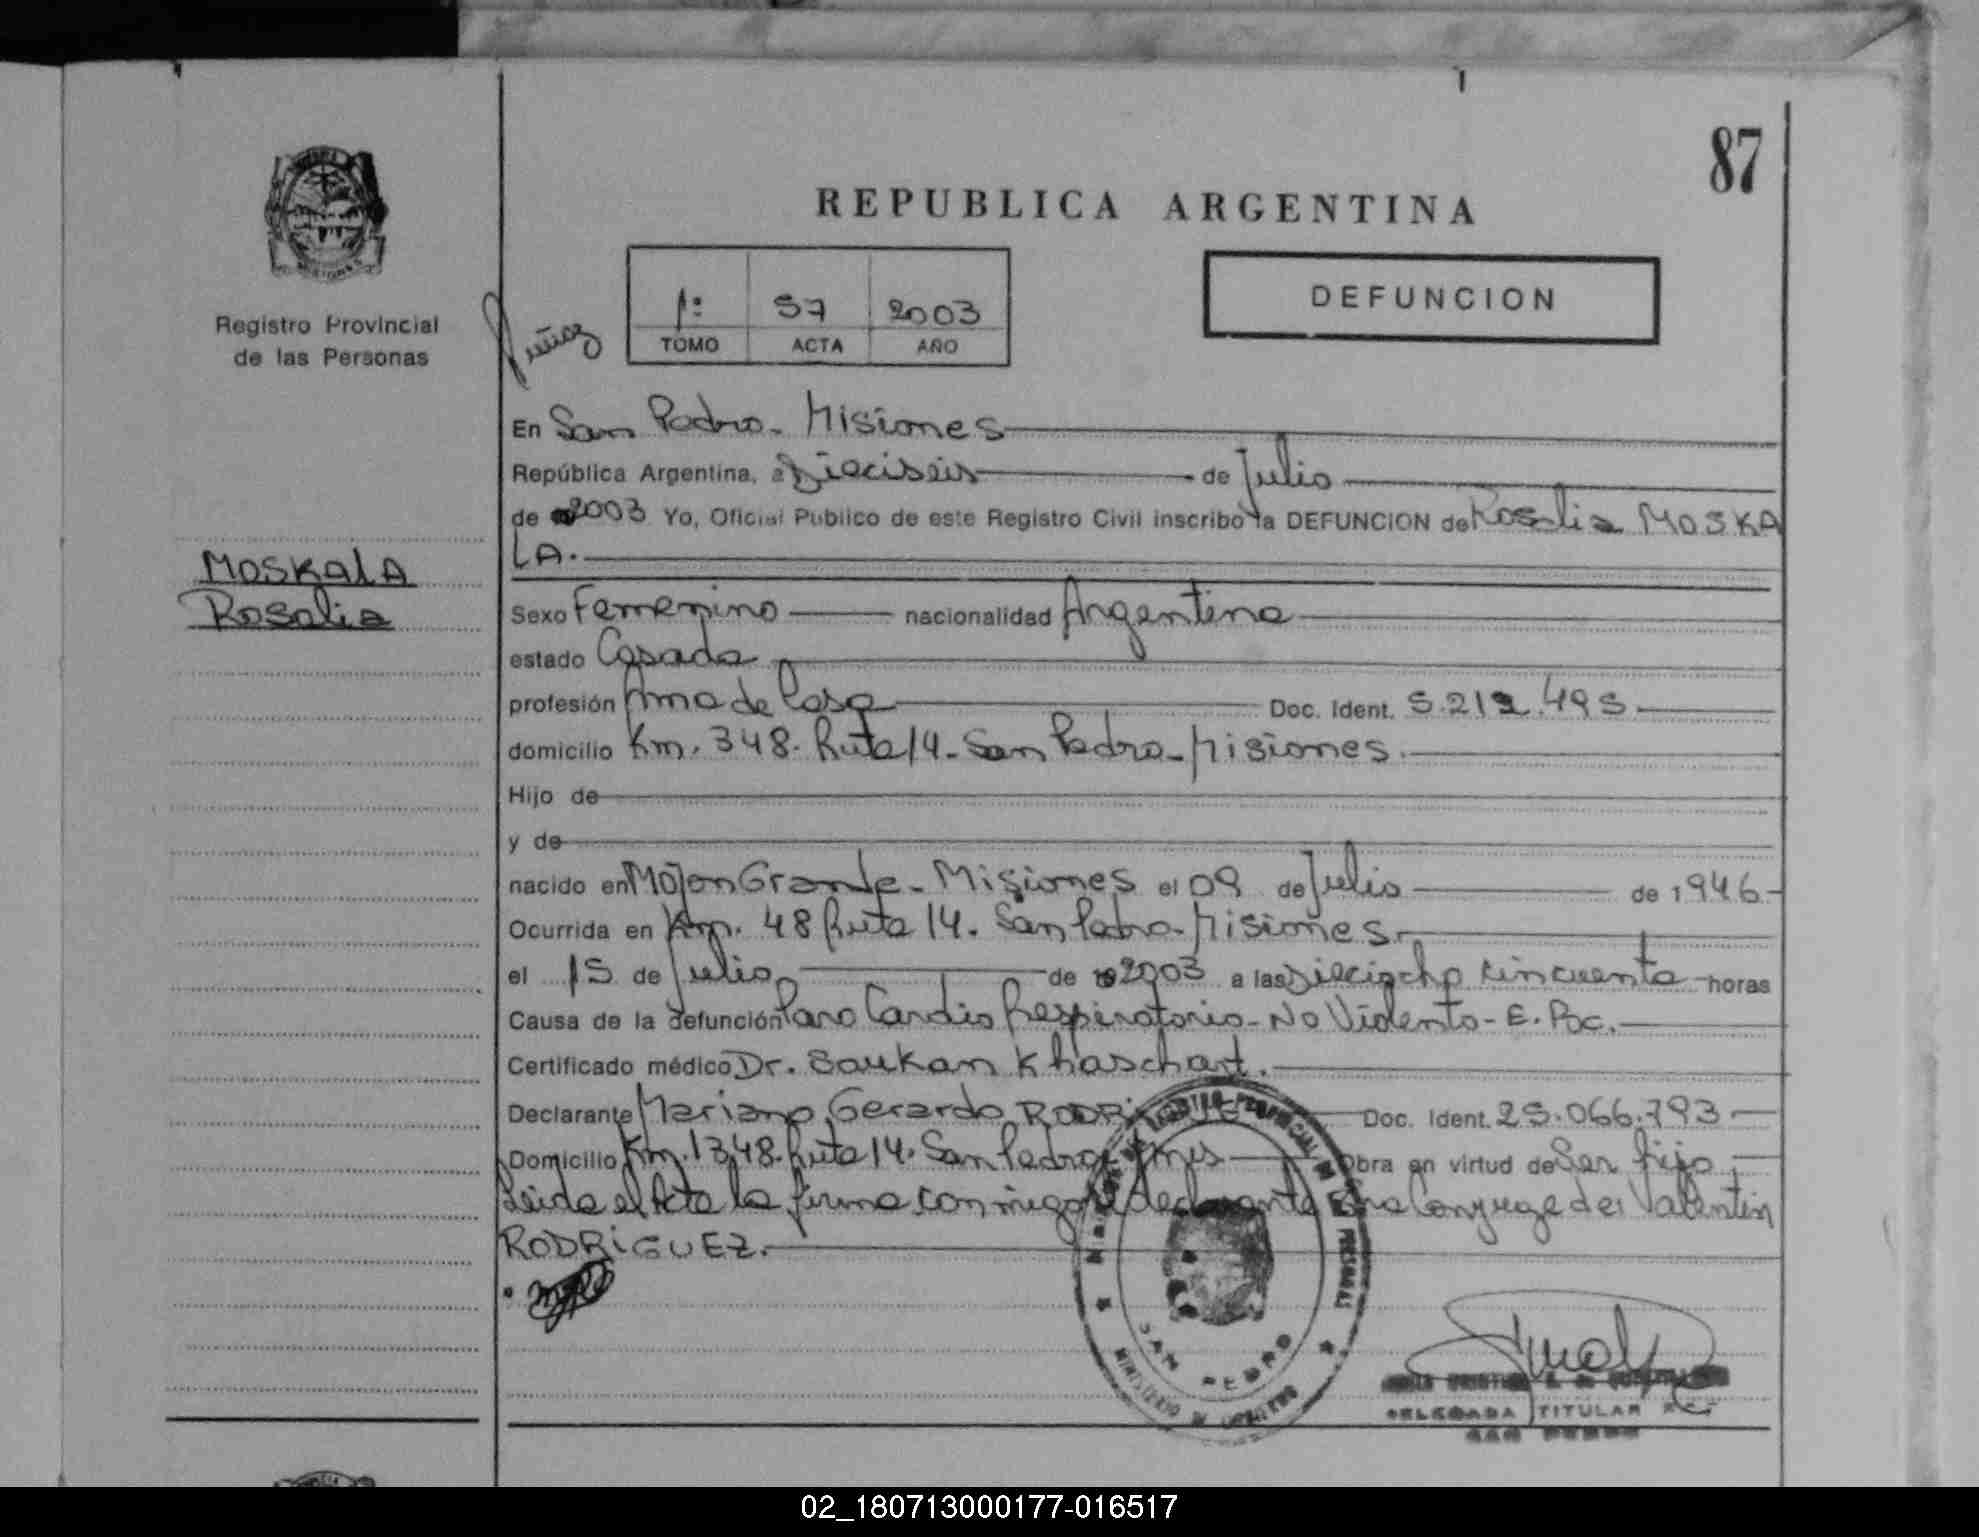 87
REPUBLICA ARGENTINA
Registro Provincial
de las Personas
1º 57 2003
TOMO ACTA AÑO
DEFUNCION
En San Pedro - Misiones
República Argentina, a Dieciseis de Julio
de 2003 Yo, Oficial Publico de este Registro Civil inscribo la DEFUNCION de Rosalia MOSKA
LA.
MOSKALA
Rosalia
Sexo Femenino nacionalidad Argentina
estado Casada
profesión Ama de Casa Doc. Ident. 5.212.495.
domicilio Km. 348. Ruta 14 - San Pedro - Misiones.
Hijo de
y de
nacido en Mojon Grande - Misiones el 09 de Julio de 1946-
Ocurrida en Km. 48 Ruta 14. San Pedro - Misiones.
el 15 de Julio de 2003 a las dieciocho cincuenta horas
Causa de la defunción Paro Cardio Respiratorio - No Violento - E.Poc.
Certificado médico Dr. Saukan Khaschart.
Declarante Mariano Gerardo Doc. Ident. 25.066.793
Domicilio Km. 1348. Ruta 14. San Pedro, Mnes Obra en virtud de Ser hijo
Leida el Acta la firma conmigo el declarante Era Conyuge de: Valentin
RODRiGUEZ.
SAN PEDRO
MINISTERIO DE GOBIERNO
DELEGADA TITULAR
SAN PEDRO
02_180713000177-016517